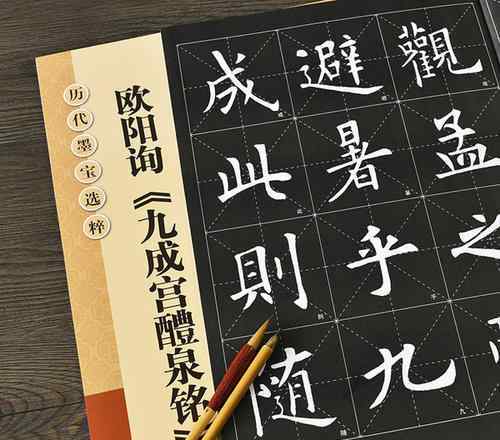 历代墨宝选粹
欧阳询《九成宫醴泉铭
觀孟之
避暑乎九
成此則随